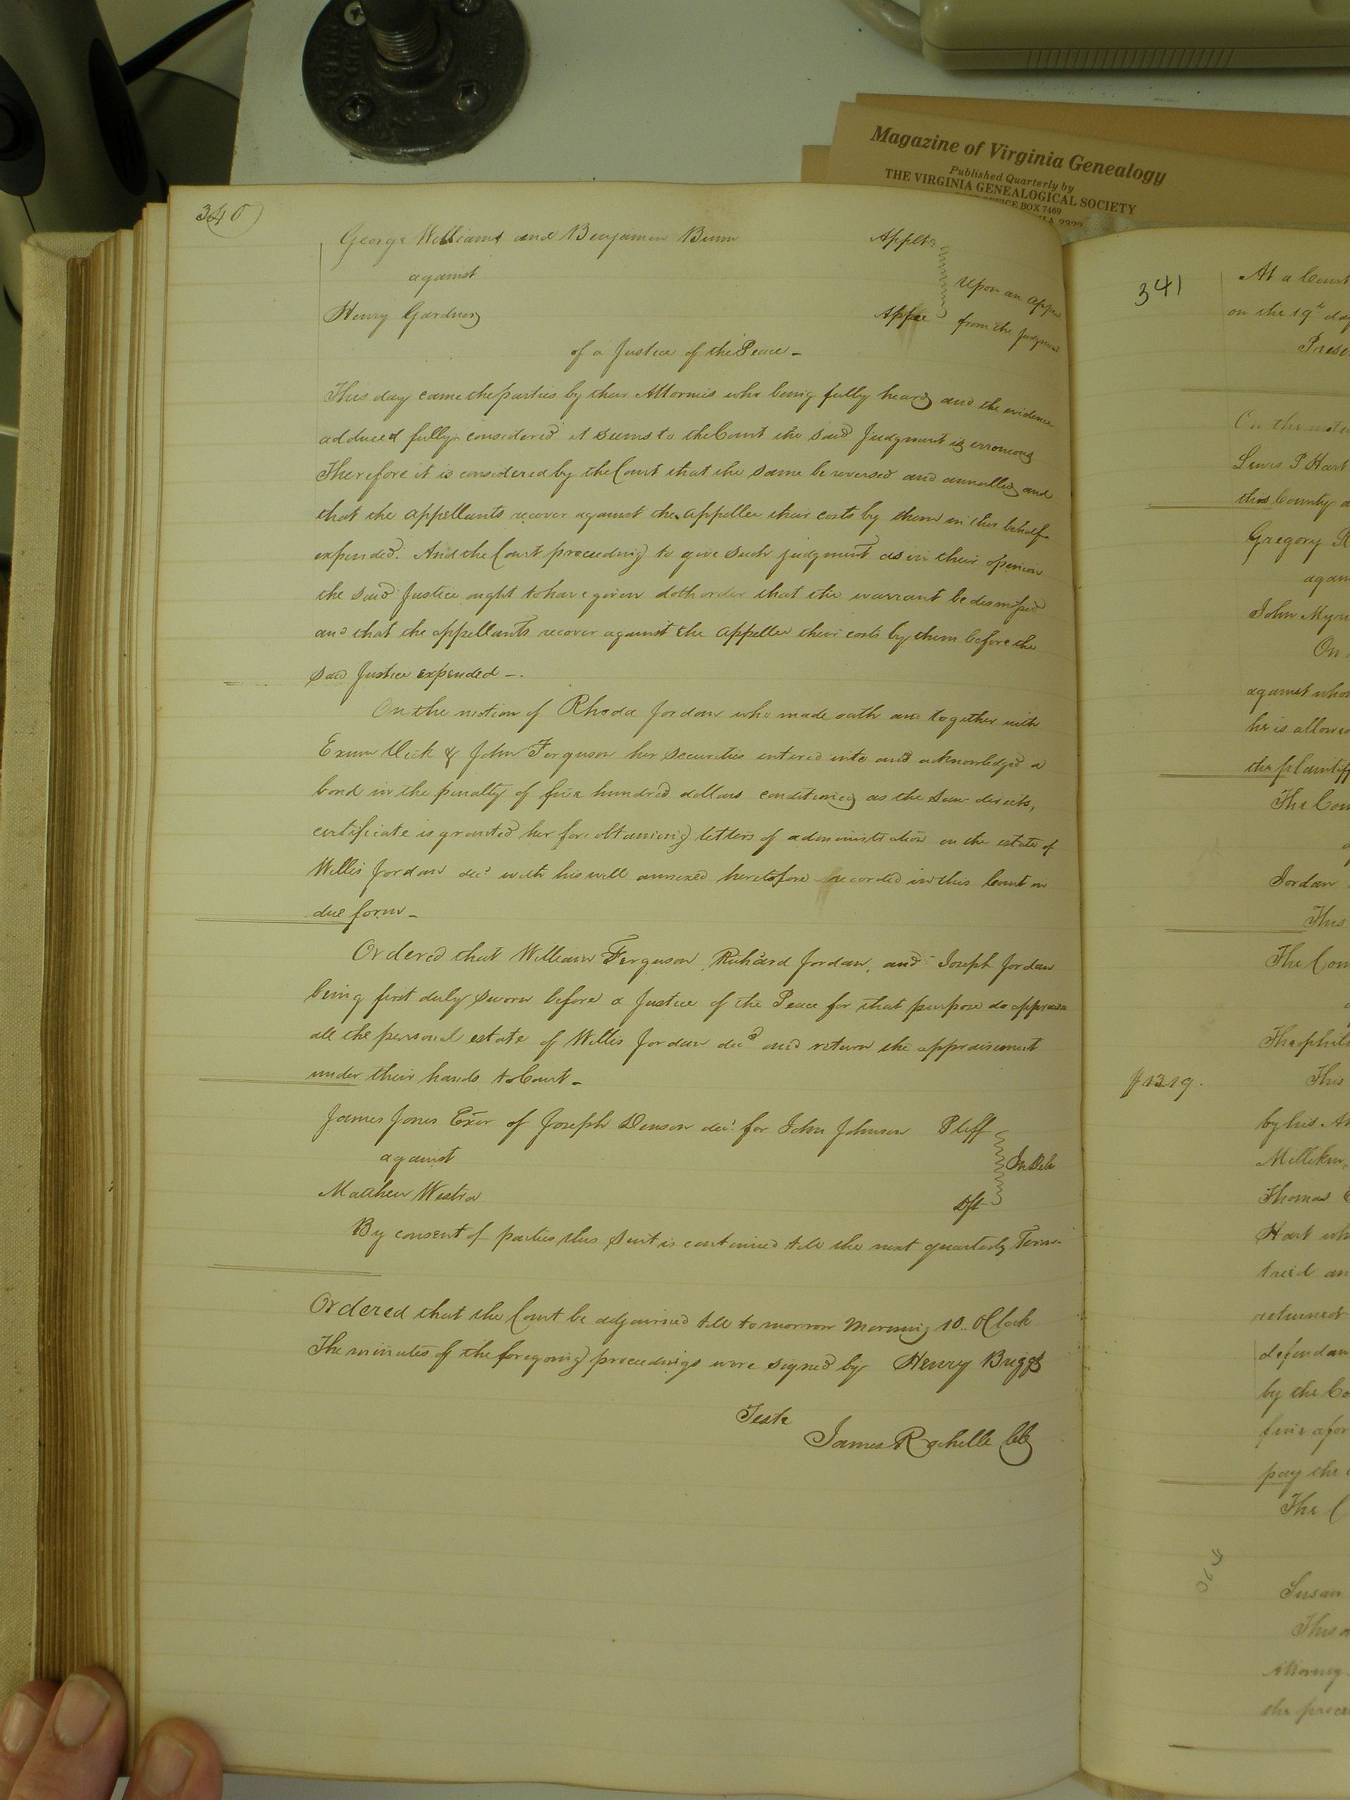 Magazine of Virginia Genealogy
Published Quarterly by
THE VIRGINIA GENEALOGICAL SOCIETY
OFFICE BOX 7469
340
George Williams and Benjamin Bunn Applts
against Upon an appeal
Henry Gardner Appee from the judgment
of a Justice of the Peace -
This day came the parties by their Attornies who being fully heard and the evidence
adduced fully considered it seems to the Court the said Judgment is erroneous
Therefore it is considered by the Court that the same be reversed and annulled and
that the appellants recover against the appellee their costs by them in this behalf
expended. And the Court proceeding to give such judgment as in their opinion
the said Justice ought to have given doth order that the warrant be dismissed
and that the appellants recover against the appellee their costs by them before the
said Justice expended -.
On the motion of Rhoda Jordan who made oath and together with
Exum Vick & John Ferguson her securities entered into and acknowledged a
bond in the penalty of five hundred dollars conditioned as the law directs,
certificate is granted her for obtaining letters of administration on the estate of
Willis Jordan decd with his will annexed heretofore recorded in this Court in
due form -
Ordered that William Ferguson, Richard Jordan, and Joseph Jordan
being first duly sworn before a Justice of the Peace for that purpose do appraise
all the personal estate of Willis Jordan decd and return the appraisement
under their hands to Court -
James Jones Exor of Joseph Denson decd for John Johnson Pltff
against In Debt
Matthew Westra Dft
By consent of parties this suit is continued till the next quarterly Term
Ordered that the Court be adjourned till tomorrow Morning 10.. OClock
The minutes of the foregoing proceedings were signed by Henry Briggs
Teste
James Rochelle Clk
341
At a Court
on the 19th day
Presen
On the motion
Lewis P Hart
this County a
Gregory R
again
John Myri
On
against whom
he is allowed
the plaintiff
The Com
Jordan
This
The Com
Theophilu
$12.19.
This
by his At
Milliken,
Thomas
Hart wh
tried an
returned
defendan
by the Co
five afor
pay the
The C
Susan
This
Attorney
the proce